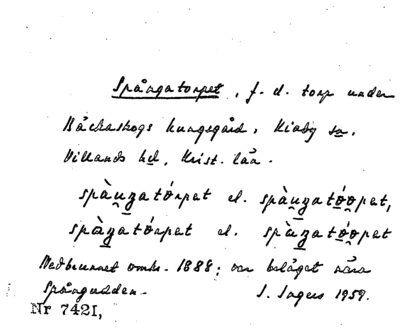 Spångatorpet, f. d. torp under
Bäckaskogs kungsgård, Kiaby sn,
Villands hd, Krist. län.
spàu̯ŋatórpet el. spàu̯ŋatóo̯pet,
spàŋatórpet el. spàu̯ŋatóo̯pet
Nedbrunnet omkr. 1888; var beläget nära
Spångudden.
S. Ingers 1959.
Nr 7421,